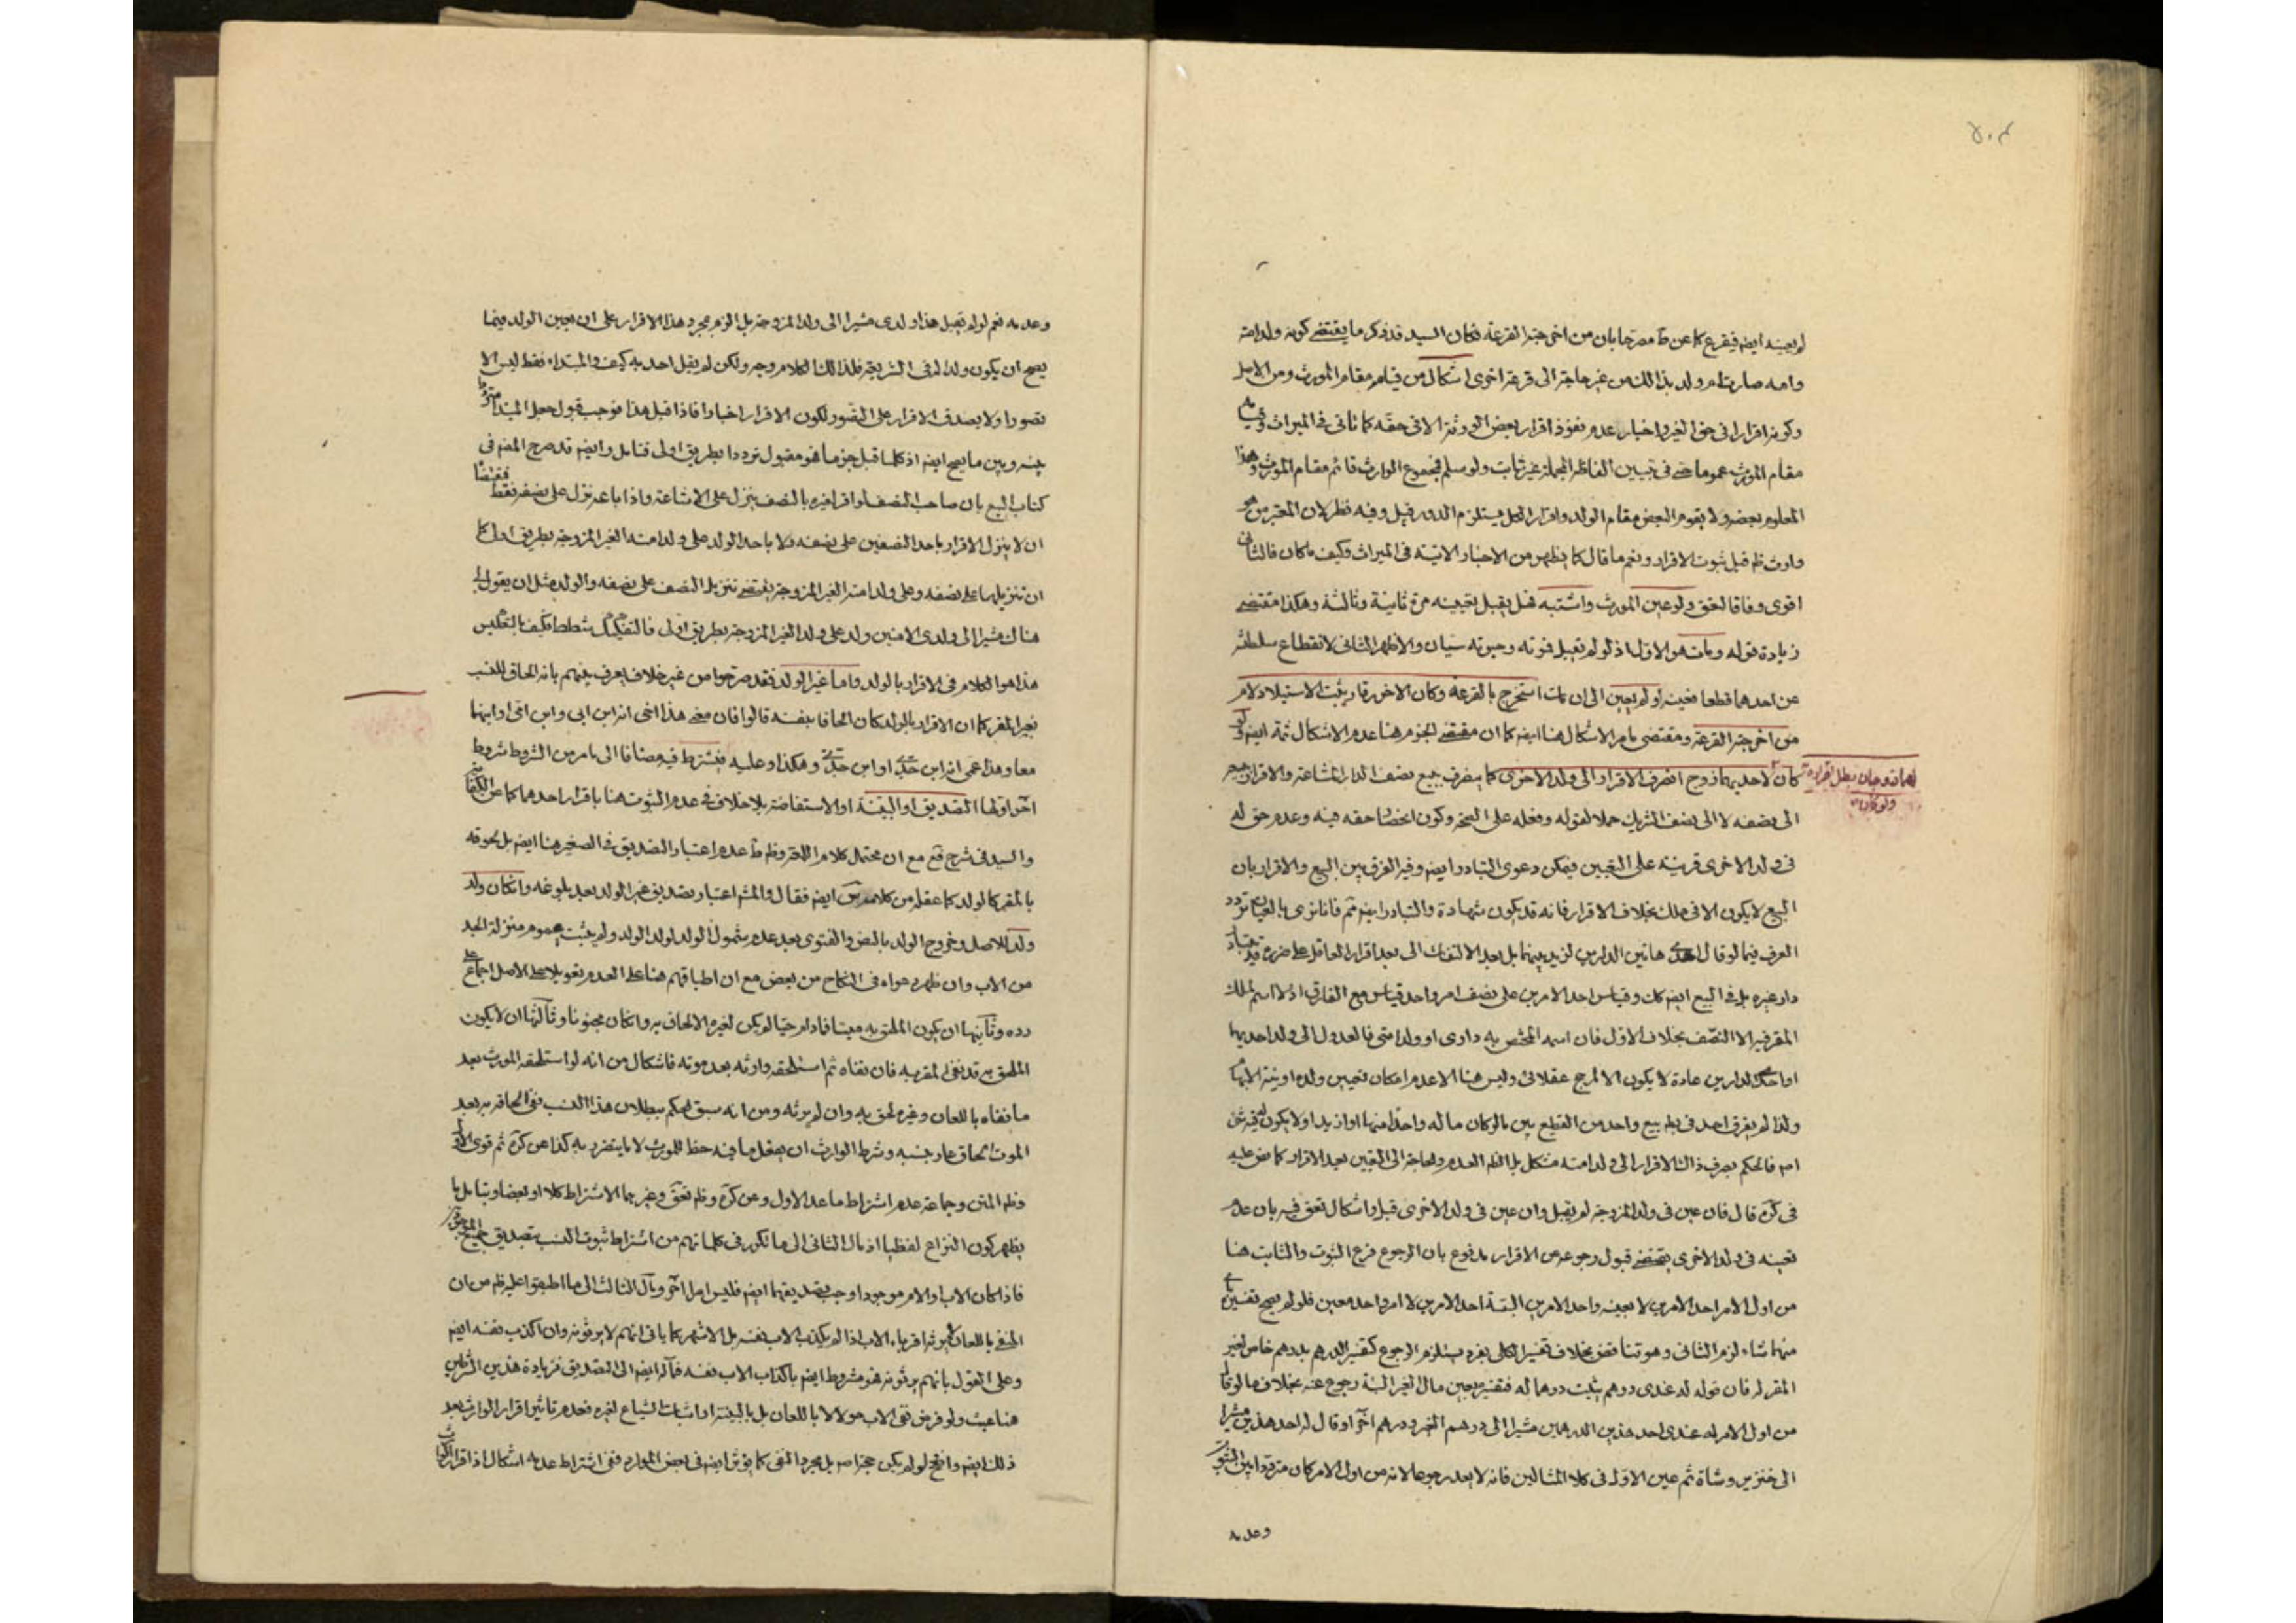 لم يعينه ايضا فيقرع كما عن ط مصرحا بان من اخرجته القرعة فكان السيد قد ذكر ما يقتضي كونه ولد امته
وامه صارت ام ولد بذلك من غير حاجة الى قرعة اخرى اشكال من قيام مقام المورث ومن الاصل
وكونه اقرارا في حق الغير واخبار عدم نفوذ اقرار بعض الورثة الا في حقه كما تاتي في الميراث
مقام المورث عموما حتى في تبيين الفاظه المجملة غير ثابت ولو سلم فمجموع الوارث قائم مقام المورث وهذا
المعلوم بعضه ولا يقوم البعض مقام الولد واقرار الكل يستلزم الدور قيل وفيه نظر لان المعتبر من هو
وارث ظم قبل ثبوت الاقرار ونعم ما قال كما يظهر من الاخبار الاتية في الميراث وكيف ما كان فالثاني
اقوى وفاقا لعق ولو عين المورث واشتبه فهل يقبل بتعيينه مرة ثانية وثالثة وهكذا مقتضى
زيادة قوله ومات هو الاول اذ لو لم يقبل فموته وحيوته سيان والاظهر الثاني لانقطاع سلطنته
عن احدهما قطعا فعينه او لم يعين الى ان مات استخرج بالقرعة وكان الاخر رقا ويثبت الاستيلاد لام
من اخرجته القرعة ومقتضى ما مر الاشكال هنا ايضا كما ان مقتضى الجزم هنا عدم الاشكال ثمة ايضا ولو
لهما زوجان بطل اقراره
ولو كان
كان لاحديهما زوج انصرف الاقرار الى ولد الاخرى كما ينصرف بيع نصف الدار المشاعة والاقرار
الى نصفه لا الى نصف الشريك حملا لقوله وفعله على الصحة وكون انحصار حقه فيه وعدم حق له
في ولد الاخرى قرينة على التعيين فيمكن دعوى التبادر ايضا وفيه الفرق بين البيع والاقرار بان
البيع لا يكون الا في ملك بخلاف الاقرار فانه قد يكون شهادة والتبادر ايضا ثم فانا نرى بالعيان تردد
العرف فيما لو قال احدى هاتين الدارين لزيد بينهما بل بعد الالتفات الى بعد اقرار العاقل على ضرره
دار غيره بل في البيع ايضا كك وقياس احد الامرين على نصف امر واحد قياس مع الفارق اذ لا اسم لملك
المقر فيه الا النصف بخلاف الاول فان اسمه المختص به داري او ولد امتي فالعدول الى ولد احديهما
او احد الدارين عادة لا يكون الا لمرجح عقلائي وليس هنا الا عدم امكان تعيين ولده
ولذا لم يفرق احد في بيع واحد من القطيع بين ما لو كان ماله واحدا منها او ازيد او لا يكون
اصم فالحكم بصرف ذلك الاقرار الى ولد امته مشكل بل الظم العدم والحاجة الى التعيين بعد الاقرار كما نص عليه
في كره قال فان عين في ولد المزوجة لم يقبل وان عين في ولد الاخرى قبل واشكال تعق فيه بان عدم
تعيينه في ولد الاخرى يقتضي قبول رجوعه عن الاقرار مدفوع بان الرجوع فرع الثبوت والثابت هنا
من اول الامر احد الامرين لا بعينه واحد الامرين البتة احد الامرين لا امر واحد معين فلو لم يصح تفسيره
منهما شاء لزم الثاني وهو تناقض بخلاف تفسير الكلي بفرد يستلزم الرجوع كتفسير الدرهم بدرهم خاص لغير
المقر له فان قوله له عندي درهم يثبت درهما له فتفسيره بعين مال الغير البتة رجوع عنه بخلاف ما لو قال
من اول الامر له عندي احد هذين الدرهمين مشيرا الى درهم الغير ودرهم اخر او قال له احد هذين مشيرا
الى خنزير وشاة ثم عين الاول في كلا المثالين فانه لا يعد رجوعا لانه من اول الامر كان مترددا بين الثبوت
وعدمه
وعدمه نعم لو لم يقبل هذا ولدي مشيرا الى ولد المزوجة بل الزم بمجرد هذا الاقرار على ان يعين الولد فيما
يصح ان يكون ولدا له في الشريعة فلذلك الكلام وجه ولكن لم يقل احد به كيف والمبتداء فقط ليس الا
تصورا ولا يصدق الاقرار على التصور لكون الاقرار اخبارا فاذا قبل هذا موجب قبول جعل المبتدا مترددا
بينه وبين ما يصح ايضا اذ كلما قبل جزما فهو مقبول ترددا بطريق اولى فتامل وايضا قد صرح المص في
كتاب البيع بان صاحب النصف لو اقر لغيره بالنصف ينزل على الاشاعة واذا باعه نزل على نصفه فقط
ان لا ينزل الاقرار باحد النصفين على نصفه ولا باحد الولد على ولد امته الغير المزوجة بطريق اولى كما
ان تنزيلهما على نصفه وعلى ولد امته الغير المزوجة يقتضي تنزيل النصف على نصفه والولد مثل ان يقول
هناك مشيرا الى ولدي الامتين ولد على ولد الغير المزوجة بطريق اولى فالتفكيك شطط فكيف بالعكس
هذا هو الكلام في الاقرار بالولد واما غير الولد فقد صرحوا من غير خلاف يعرف بينهم بانه الحاق للنسب
بغير المقر كما ان الاقرار بالولد كان الحاقا بنفسه قالوا فان معنى هذا اخي انه ابن ابي وابن امي او ابنهما
معا وهذا عمي انه ابن جدي او ابن جدتي وهكذا وعليه فيشترط فيه مضافا الى ما مر من الشروط شروط
اخر اولها التصديق او البينة او الاستفاضة بلا خلاف في عدم الثبوت هنا باقرار احدهما كما عن الكفاية
والسيد في شرح فع مع ان محتمل كلام اللمعة وظم ط عدم اعتبار التصديق في الصغير هنا ايضا بل لحوقه
بالمقر كالولد كما عقله من كلام س ايضا فقال والمشهور اعتبار تصديق غير الولد بعد بلوغه وان كان ولد
ولد للاصل وخروج الولد بالنص والفتوى بعد عدم شمول الولد لولد الولد ولم يثبت عموم منزلة الجد
من الاب وان ظهر دعواه في النكاح من بعض مع ان اطباقهم هنا على العدم تعويلا على الاصل اجماع على
رده وثانيها ان يكون الملحق به ميتا فما دام حيا لم يكن لغيره الالحاق به وان كان مجنونا وثالثها ان لا يكون
الملحق به قد نفى المقر به فان نفاه ثم استلحقه وارثه بعد موته فاشكال من انه لو استلحقه المورث بعد
ما نفاه باللعان وغيره لحق به وان لم يرثه ومن انه سبق الحكم ببطلان هذا النسب ففي الحاقه به بعد
الموت الحاق عار بنسبه وشرط الوارث ان يفعل ما فيه حظ للمورث لا ما يتضرر به كذا عن كره ثم قوى الاول
وظم المتن وجماعة عدم اشتراط ما عدا الاول وعن كره وظم تعق وغيرهما الاشتراط كلا او بعضا
يظهر كون النزاع لفظيا اذ مال الثاني الى ما تكرر في كلماتهم من اشتراط ثبوت النسب بتصديق جميع
فاذا كان الاب او الام موجودا وجب تصديقهما ايضا فليس امرا اخر ومال الثالث الى ما اطبقوا عليه ظم من ان
المنفي باللعان لا يرثه اقرباء الاب اذا لم يكذب الاب نفسه بل الاشهر كما ياتي انهم لا يرثونه وان اكذب نفسه ايضا
وعلى القول بانهم يرثونه فهو مشروط ايضا باكذاب الاب نفسه فماله ايضا الى التصديق فزيادة هذين الشرطين
هنا عبث ولو فرض نفي الاب مولا لا باللعان بل بالبينة او اثبات الشياع لغيره فعدم تاثير اقرار الوارث بعد
ذلك ايضا واضح لو لم يكن حجز اصم بل مجرد النفي كما يؤثر ايضا في بعض الموارد ففي اشتراط عدمه اشكال اذ اقرار الوارث